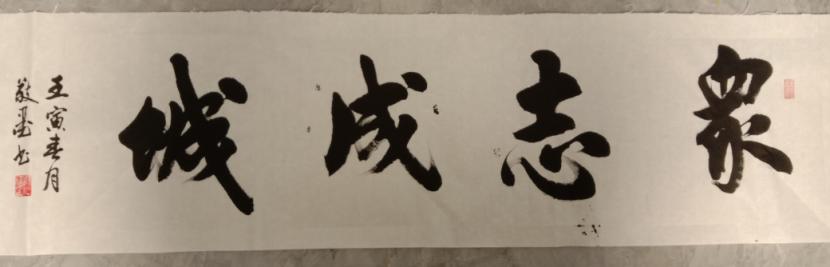 眾志成城
壬寅春月
敬墨书